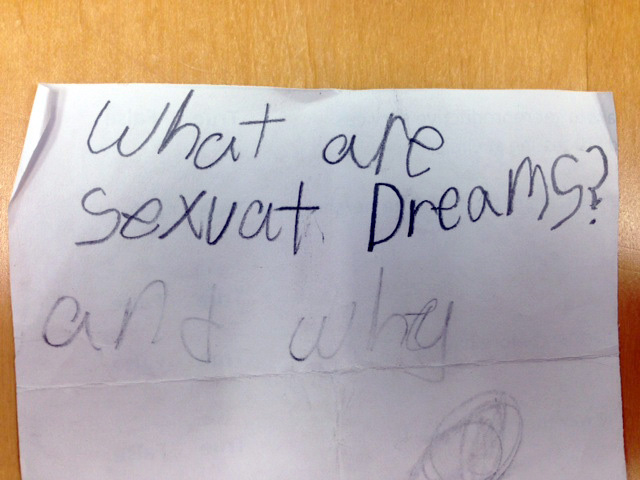 What are
Sexuat Dreams?
and why